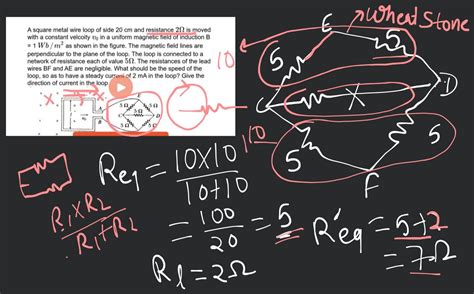 A square metal wire loop of side 20 cm and resistance 2Ω is moved
with a constant velocity v₀ in a uniform magnetic field of induction B
= 1 Wb / m² as shown in the figure. The magnetic field lines are
perpendicular to the plane of the loop. The loop is connected to a
network of resistance each of value 5Ω. The resistances of the lead
wires BF and AE are negligible. What should be the speed of the
loop, so as to have a steady current of 2 mA in the loop? Give the
direction of current in the loop.
Wheat Stone
10
E
5
C
D
X
5
5
F
10
x
A
B
5 Ω
5 Ω
5 Ω
C
D
5 Ω
5 Ω
Req = 10X10
10+10
= 100
20
= 5
R1XR2
R1+R2
Rl = 2Ω
R'eq = 5+2
= 7Ω